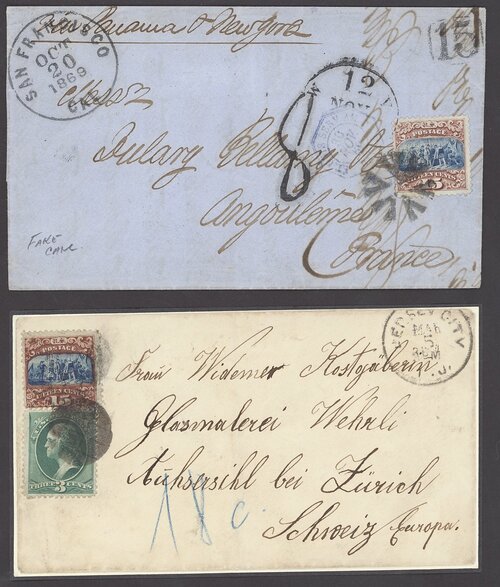 Via Panama & New York
SAN FRANCISCO
OCT
20
1869
CAL.
15
Messz
12
NOV
8
Dulary Bellamy
Angoulême
France
POSTAGE
FIFTEEN CENTS
FAKE
CANC.
JERSEY CITY
MAR
5
N.J.
POSTAGE
15
THREE 3 CENTS
Frau Widemer Kostgeberin
Glasmalerei Wehrli
bei Zürich
Schweiz Europa.
18 c.